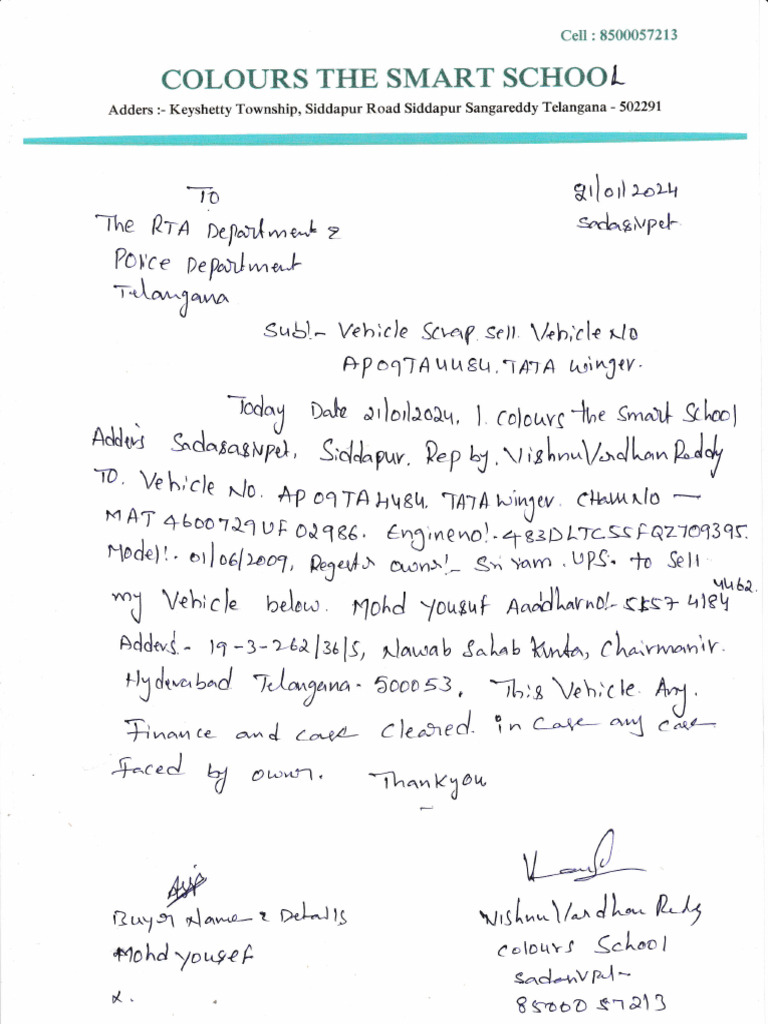 Cell : 8500057213
COLOURS THE SMART SCHOOL
Adders :- Keyshetty Township, Siddapur Road Siddapur Sangareddy Telangana - 502291
21/01/2024
Sadasivpet
TO
The RTA Department &
Police Department
Telangana
Sub!- Vehicle Scrap sell. Vehicle NO
AP09TA4484. TATA Winger.
Today Date 21/01/2024, I. Colours the Smart School
Adders Sadasasivpet, Siddapur. Rep by. Vishnu Vardhan Reddy
TO. Vehicle No. AP 09TA4484. TATA Winger. CHASI NO —
MAT 4600729UF02986. Engineno!- 483DLTC55FQZ709395.
Model!- 01/06/2009, Regester owner!- Sri ram. UPS. to Sell
my Vehicle below. Mohd Yousuf Aaadharno!- 5557 4184 4462.
Adders!- 19-3-262/36/5, Nawab Sahab Kunta, Chairmanir.
Hyderabad Telangana- 500053, This Vehicle Any.
Finance and case cleared. in case any case
Faced by owner. Thankyou
Buyer Name & Details
Mohd Yousef
Vishnu Vardhan Reddy
Colours School
Sadasivpet
85000 57213